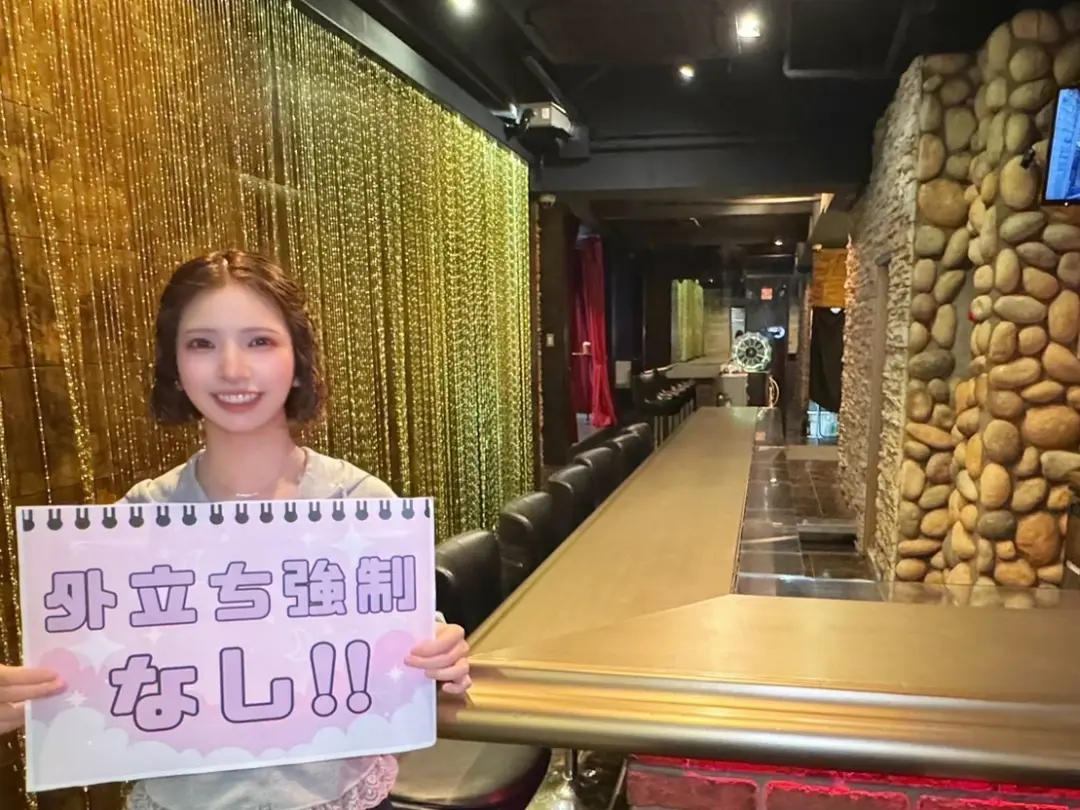 外立ち強制
なし!!